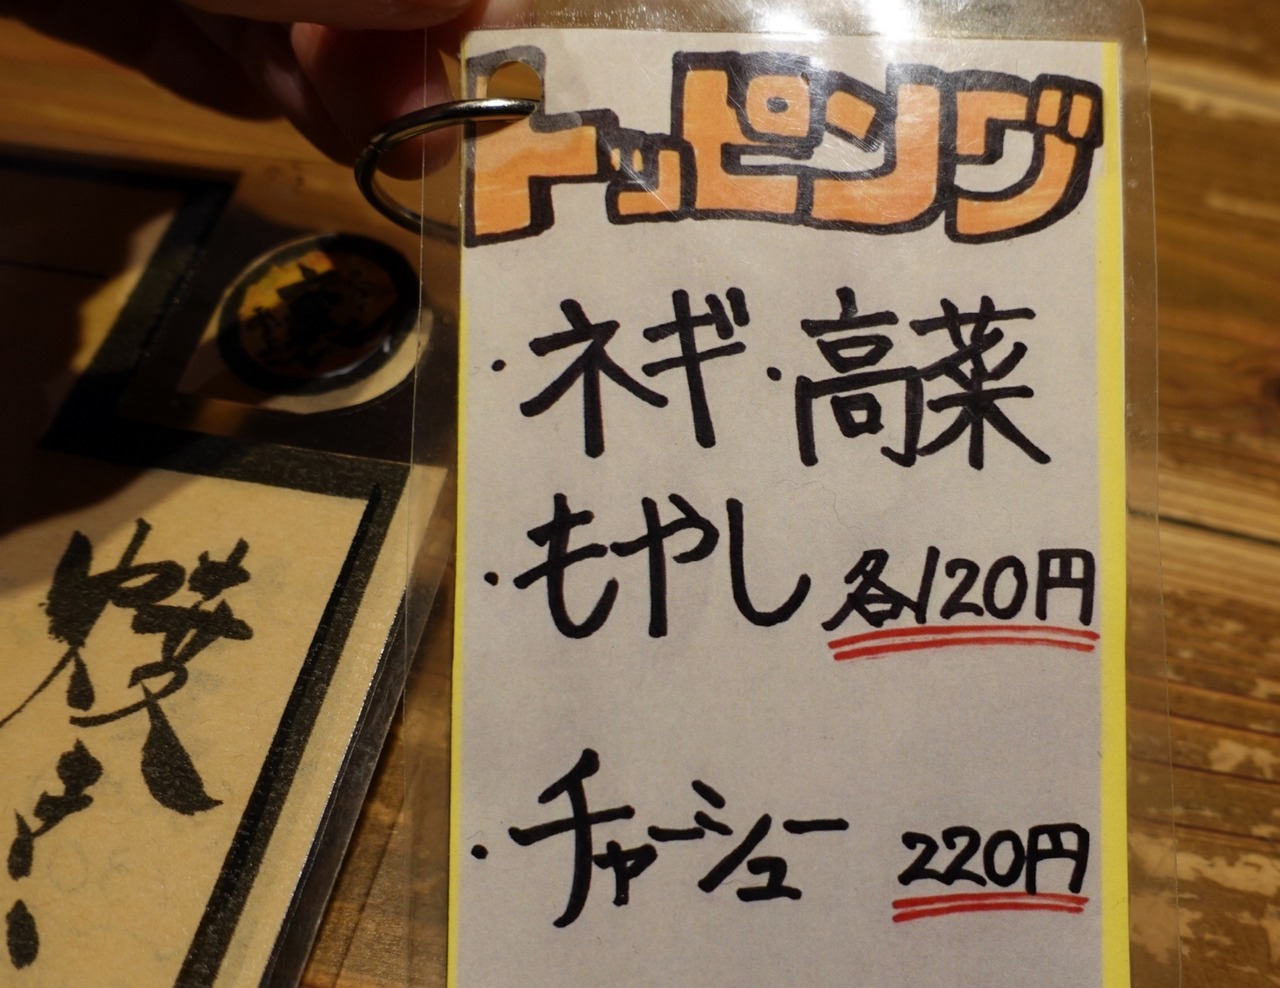 トッピング
・ネギ・高菜
・もやし 各120円
・チャーシュー 220円